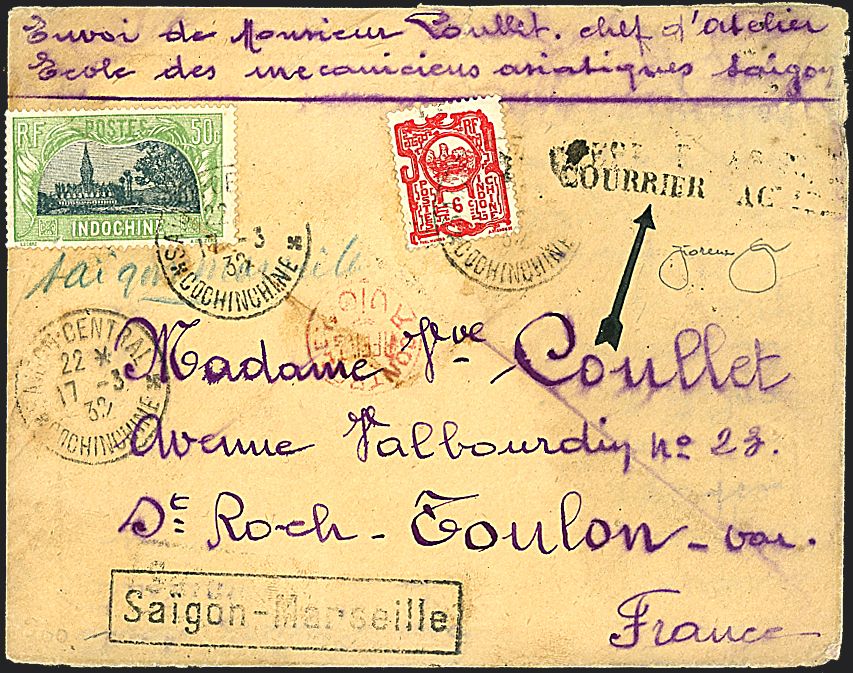 Envoi de Monsieur Coullet. chef d'atelier
Ecole des mecaniciens asiatiques Saigon
RF POSTES 50c
INDOCHINE
RF
POSTES INDOCHINE
6
COURRIER AC
SAIGON-CENTRAL
22 *
17 -3
32
COCHINCHINE
17 -3
32
COCHINCHINE
COCHINCHINE
Saigon Marseille
Madame Vve Coullet
Avenue Valbourdin no 23.
St Roch - Toulon - var.
France
Saigon-Marseille